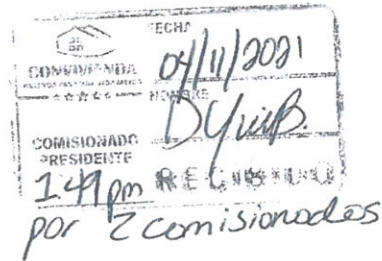 FECHA
CONVIVIENDA
04/11/2021
NOMBRE
COMISIONADO
PRESIDENTE
1:49 pm RECIBIDO
por 2 comisionados